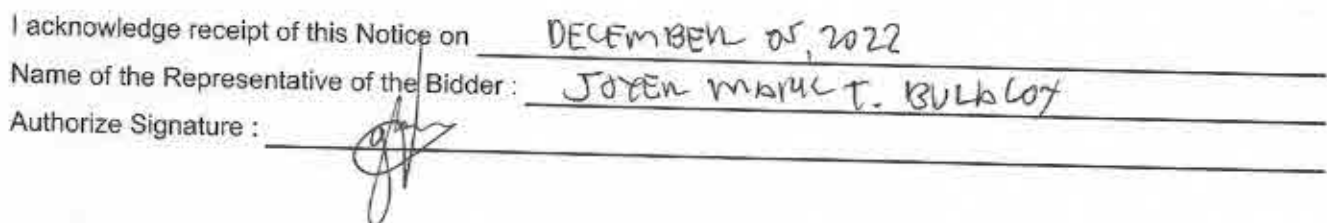 I acknowledge receipt of this Notice on DECEMBER 05, 2022
Name of the Representative of the Bidder : MARK T. BULALOY
Authorize Signature :